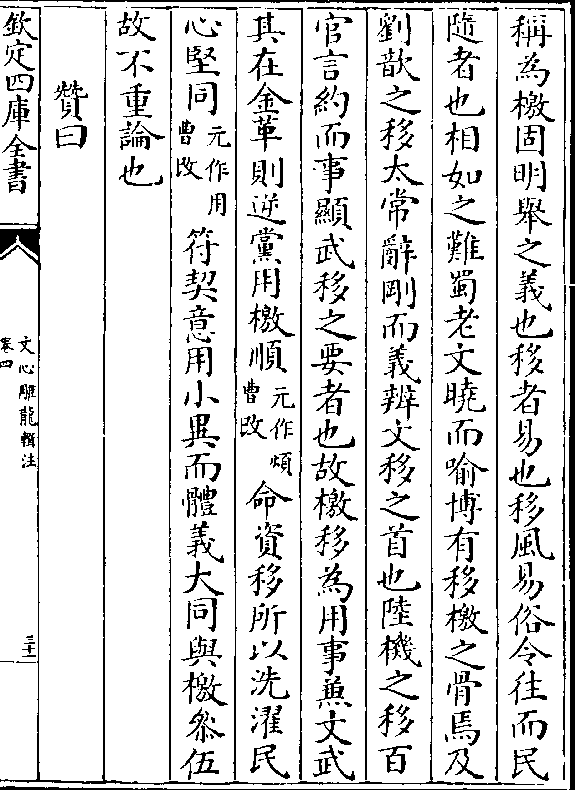 稱為檄固明舉之義也移者易也移風易俗令往而民
隨者也相如之難蜀老文曉而喻博有移檄之骨焉及
劉歆之移太常辭剛而義辨文移之首也陸機之移百
官言約而事顯武移之要者也故檄移為用事兼文武
其在金革則逆黨用檄順元作煩曹改命資移所以洗濯民
心堅同元作用曹改符契意用小異而體義大同與檄叅伍
故不重論也
贊曰
欽定四庫全書
文心雕龍輯注
卷四
三十一